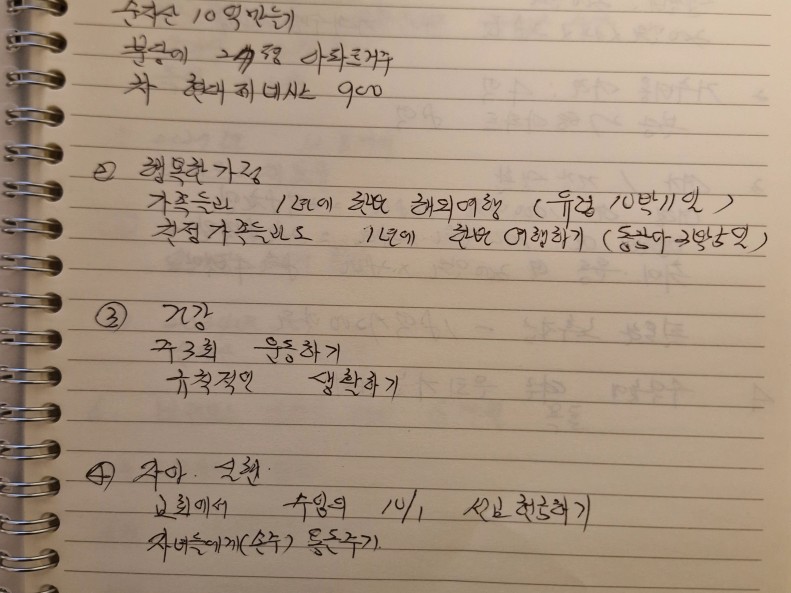 순자산 10억 만들기
분당에 24평 아파트 거주
차 현대 제네시스 900
② 행복한 가정
가족들과 1년에 한번 해외여행 (유럽 10박 11일)
친정가족들과도 1년에 한번 여행하기 (동남아 3박 5일)
③ 건강
주 3회 운동하기
규칙적인 생활하기
④ 자아. 실현.
교회에서 수입의 10/1 헌금하기
자녀들에게(손주) 용돈주기